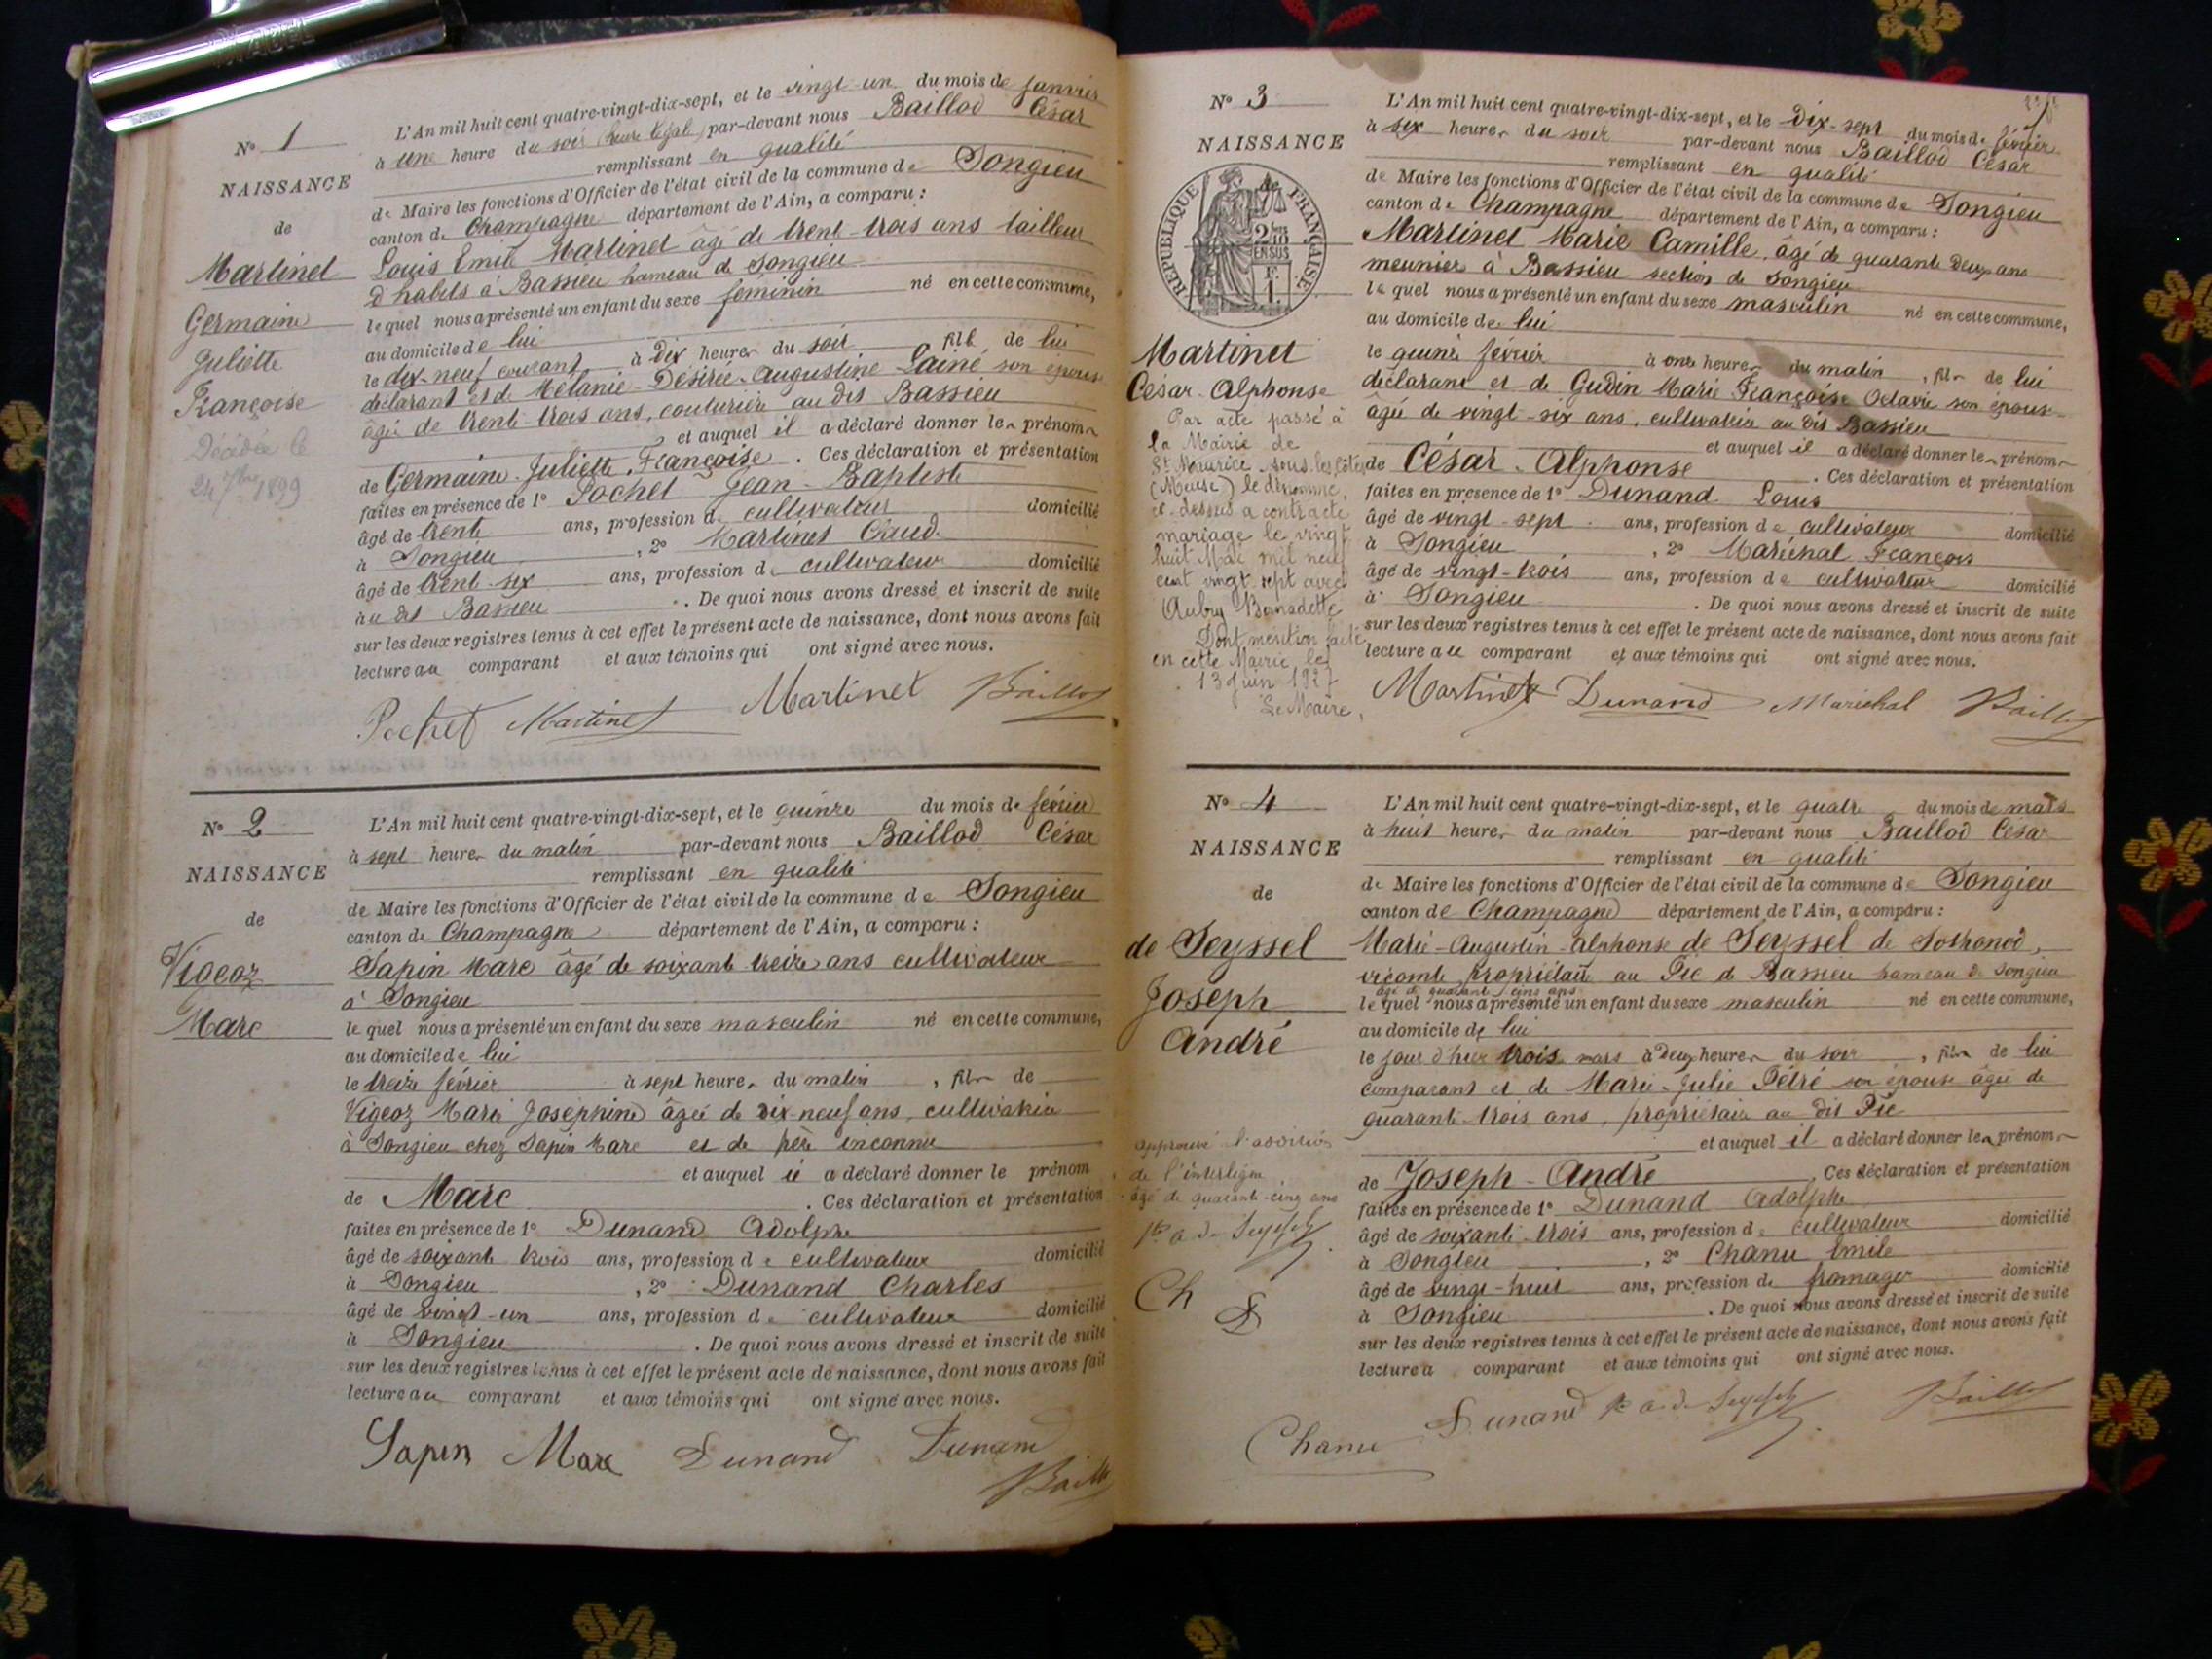 N° 1
NAISSANCE
de
Martinet
Germaine
Juliette
Françoise
Décédée le
24 7bre 1899
L'An mil huit cent quatre-vingt-dix-sept, et le vingt-un du mois de janvier
à une heure du soir (heure légale) par-devant nous Baillod César
remplissant en qualité
de Maire les fonctions d'Officier de l'état civil de la commune de Songieu
canton de Champagne département de l'Ain, a comparu :
Louis Emile Martinet âgé de trent-trois ans tailleur
d'habits à Bassieu hameau de Songieu
le quel nous a présenté un enfant du sexe feminin né en cette commune,
au domicile de lui
le dix-neuf courant à dix heures du soir, fill de lui
déclarant et de Mélanie-Désirée-Augustine Lainé son épouse
âgée de trent-trois ans, couturière au dis Bassieu
et auquel il a déclaré donner les prénoms
de Germaine Juliette Françoise. Ces déclaration et présentation
faites en présence de 1° Pochet Jean-Baptiste
âgé de trente ans, profession de cultivateur domicilié
à Songieu, 2° Martinet Claud
âgé de trent-six ans, profession de cultivateur domicilié
au dit Bassieu. De quoi nous avons dressé et inscrit de suite
sur les deux registres tenus à cet effet le présent acte de naissance, dont nous avons fait
lecture au comparant et aux témoins qui ont signé avec nous.
Pochet Martinet Martinet Baillod
N° 2
NAISSANCE
de
Vigeoz
Marc
L'An mil huit cent quatre-vingt-dix-sept, et le quinze du mois de février
à sept heures du matin par-devant nous Baillod César
remplissant en qualité
de Maire les fonctions d'Officier de l'état civil de la commune de Songieu
canton de Champagne département de l'Ain, a comparu :
Sapin Marc âgé de soixante treize ans cultivateur
à Songieu
le quel nous a présenté un enfant du sexe masculin né en cette commune,
au domicile de lui
le treize février à sept heures du matin, fils de
Vigeoz Marie Joséphine âgée de dix-neuf ans, cultivatrice
à Songieu chez Sapin Marc et de père inconnu
et auquel il a déclaré donner le prénom
de Marc. Ces déclaration et présentation
faites en présence de 1° Dunand Adolphe
âgé de soixante trois ans, profession de cultivateur domicilié
à Songieu, 2° Dunand Charles
âgé de vingt-un ans, profession de cultivateur domicilié
à Songieu. De quoi nous avons dressé et inscrit de suite
sur les deux registres tenus à cet effet le présent acte de naissance, dont nous avons fait
lecture au comparant et aux témoins qui ont signé avec nous.
Sapin Marc Dunand Dunand
Baillod
N° 3
NAISSANCE
de
RÉPUBLIQUE FRANÇAISE
2/10 EN SUS
F. 1.
Martinet
César-Alphonse
Par acte passé à
la Mairie de
St Maurice sous les côtes
(Meuse) le dénommé
ci-dessus a contracté
mariage le vingt
huit Mai mil neuf
cent vingt sept avec
Aubry Bernadette
Dont mention faite
en cette Mairie le
13 Juin 1927
Le Maire,
L'An mil huit cent quatre-vingt-dix-sept, et le dix-sept du mois de février
à six heures du soir par-devant nous Baillod César
remplissant en qualité
de Maire les fonctions d'Officier de l'état civil de la commune de Songieu
canton de Champagne département de l'Ain, a comparu :
Martinet Marie Camille, âgé de quarante deux ans
meunier à Bassieu section de Songieu
le quel nous a présenté un enfant du sexe masculin né en cette commune,
au domicile de lui
le quinze février à onze heures du matin, fils de lui
déclarant et de Gudin Marie Françoise Octavie son épouse
âgée de vingt-six ans, cultivatrice au dis Bassieu
et auquel il a déclaré donner les prénoms
de César-Alphonse. Ces déclaration et présentation
faites en présence de 1° Dunand Louis
âgé de vingt-sept ans, profession de cultivateur domicilié
à Songieu, 2° Maréchal François
âgé de vingt-trois ans, profession de cultivateur domicilié
à Songieu. De quoi nous avons dressé et inscrit de suite
sur les deux registres tenus à cet effet le présent acte de naissance, dont nous avons fait
lecture au comparant et aux témoins qui ont signé avec nous.
Martinet Dunand Maréchal Baillod
N° 4
NAISSANCE
de
de Seyssel
Joseph
André
approuvé l'addition
de l'interligne
âgé de quarante-cinq ans
Ch D
L'An mil huit cent quatre-vingt-dix-sept, et le quatre du mois de mars
à huit heures du matin par-devant nous Baillod César
remplissant en qualité
de Maire les fonctions d'Officier de l'état civil de la commune de Songieu
canton de Champagne département de l'Ain, a comparu :
Marie-Augustin-Alphonse de Seyssel de Sothonod,
vicomte, propriétaire au Pic de Bassieu hameau de Songieu
âgé de quarante cinq ans
le quel nous a présenté un enfant du sexe masculin né en cette commune,
au domicile de lui
le jour d'hier trois mars à deux heures du soir, fils de lui
comparant et de Marie-Julie Pétré son épouse âgée de
quarante-trois ans, propriétaire au dit Pic
et auquel il a déclaré donner les prénoms
de Joseph-André Ces déclaration et présentation
faites en présence de 1° Dunand Adolphe
âgé de soixante-trois ans, profession de cultivateur domicilié
à Songieu, 2° Chanu Emile
âgé de vingt-huit ans, profession de fromager domicilié
à Songieu. De quoi nous avons dressé et inscrit de suite
sur les deux registres tenus à cet effet le présent acte de naissance, dont nous avons fait
lecture a comparant et aux témoins qui ont signé avec nous.
Chanu Dunand Baillod